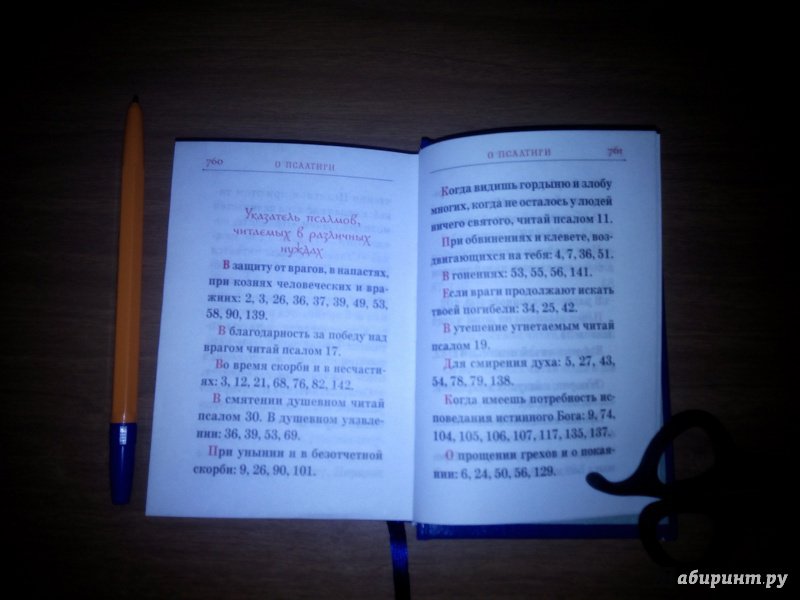 760
О ПСАЛТИРИ
Указатель псалмов,
читаемых в различных
нуждах
В защиту от врагов, в напастях,
при кознях человеческих и вра-
жиих: 2, 3, 26, 36, 37, 39, 49, 53,
58, 90, 139.
В благодарность за победу над
врагом читай псалом 17.
Во время скорби и в несчасти-
ях: 3, 12, 21, 68, 76, 82, 142.
В смятении душевном читай
псалом 30. В душевном уязвле-
нии: 36, 39, 53, 69.
При унынии и в безотчетной
скорби: 9, 26, 90, 101.
О ПСАЛТИРИ
761
Когда видишь гордыню и злобу
многих, когда не осталось у людей
ничего святого, читай псалом 11.
При обвинениях и клевете, воз-
двигающихся на тебя: 4, 7, 36, 51.
В гонениях: 53, 55, 56, 141.
Если враги продолжают искать
твоей погибели: 34, 25, 42.
В утешение угнетаемым читай
псалом 19.
Для смирения духа: 5, 27, 43,
54, 78, 79, 138.
Когда имеешь потребность ис-
поведания истинного Бога: 9, 74,
104, 105, 106, 107, 117, 135, 137.
О прощении грехов и о покая-
нии: 6, 24, 50, 56, 129.
абиринт.ру